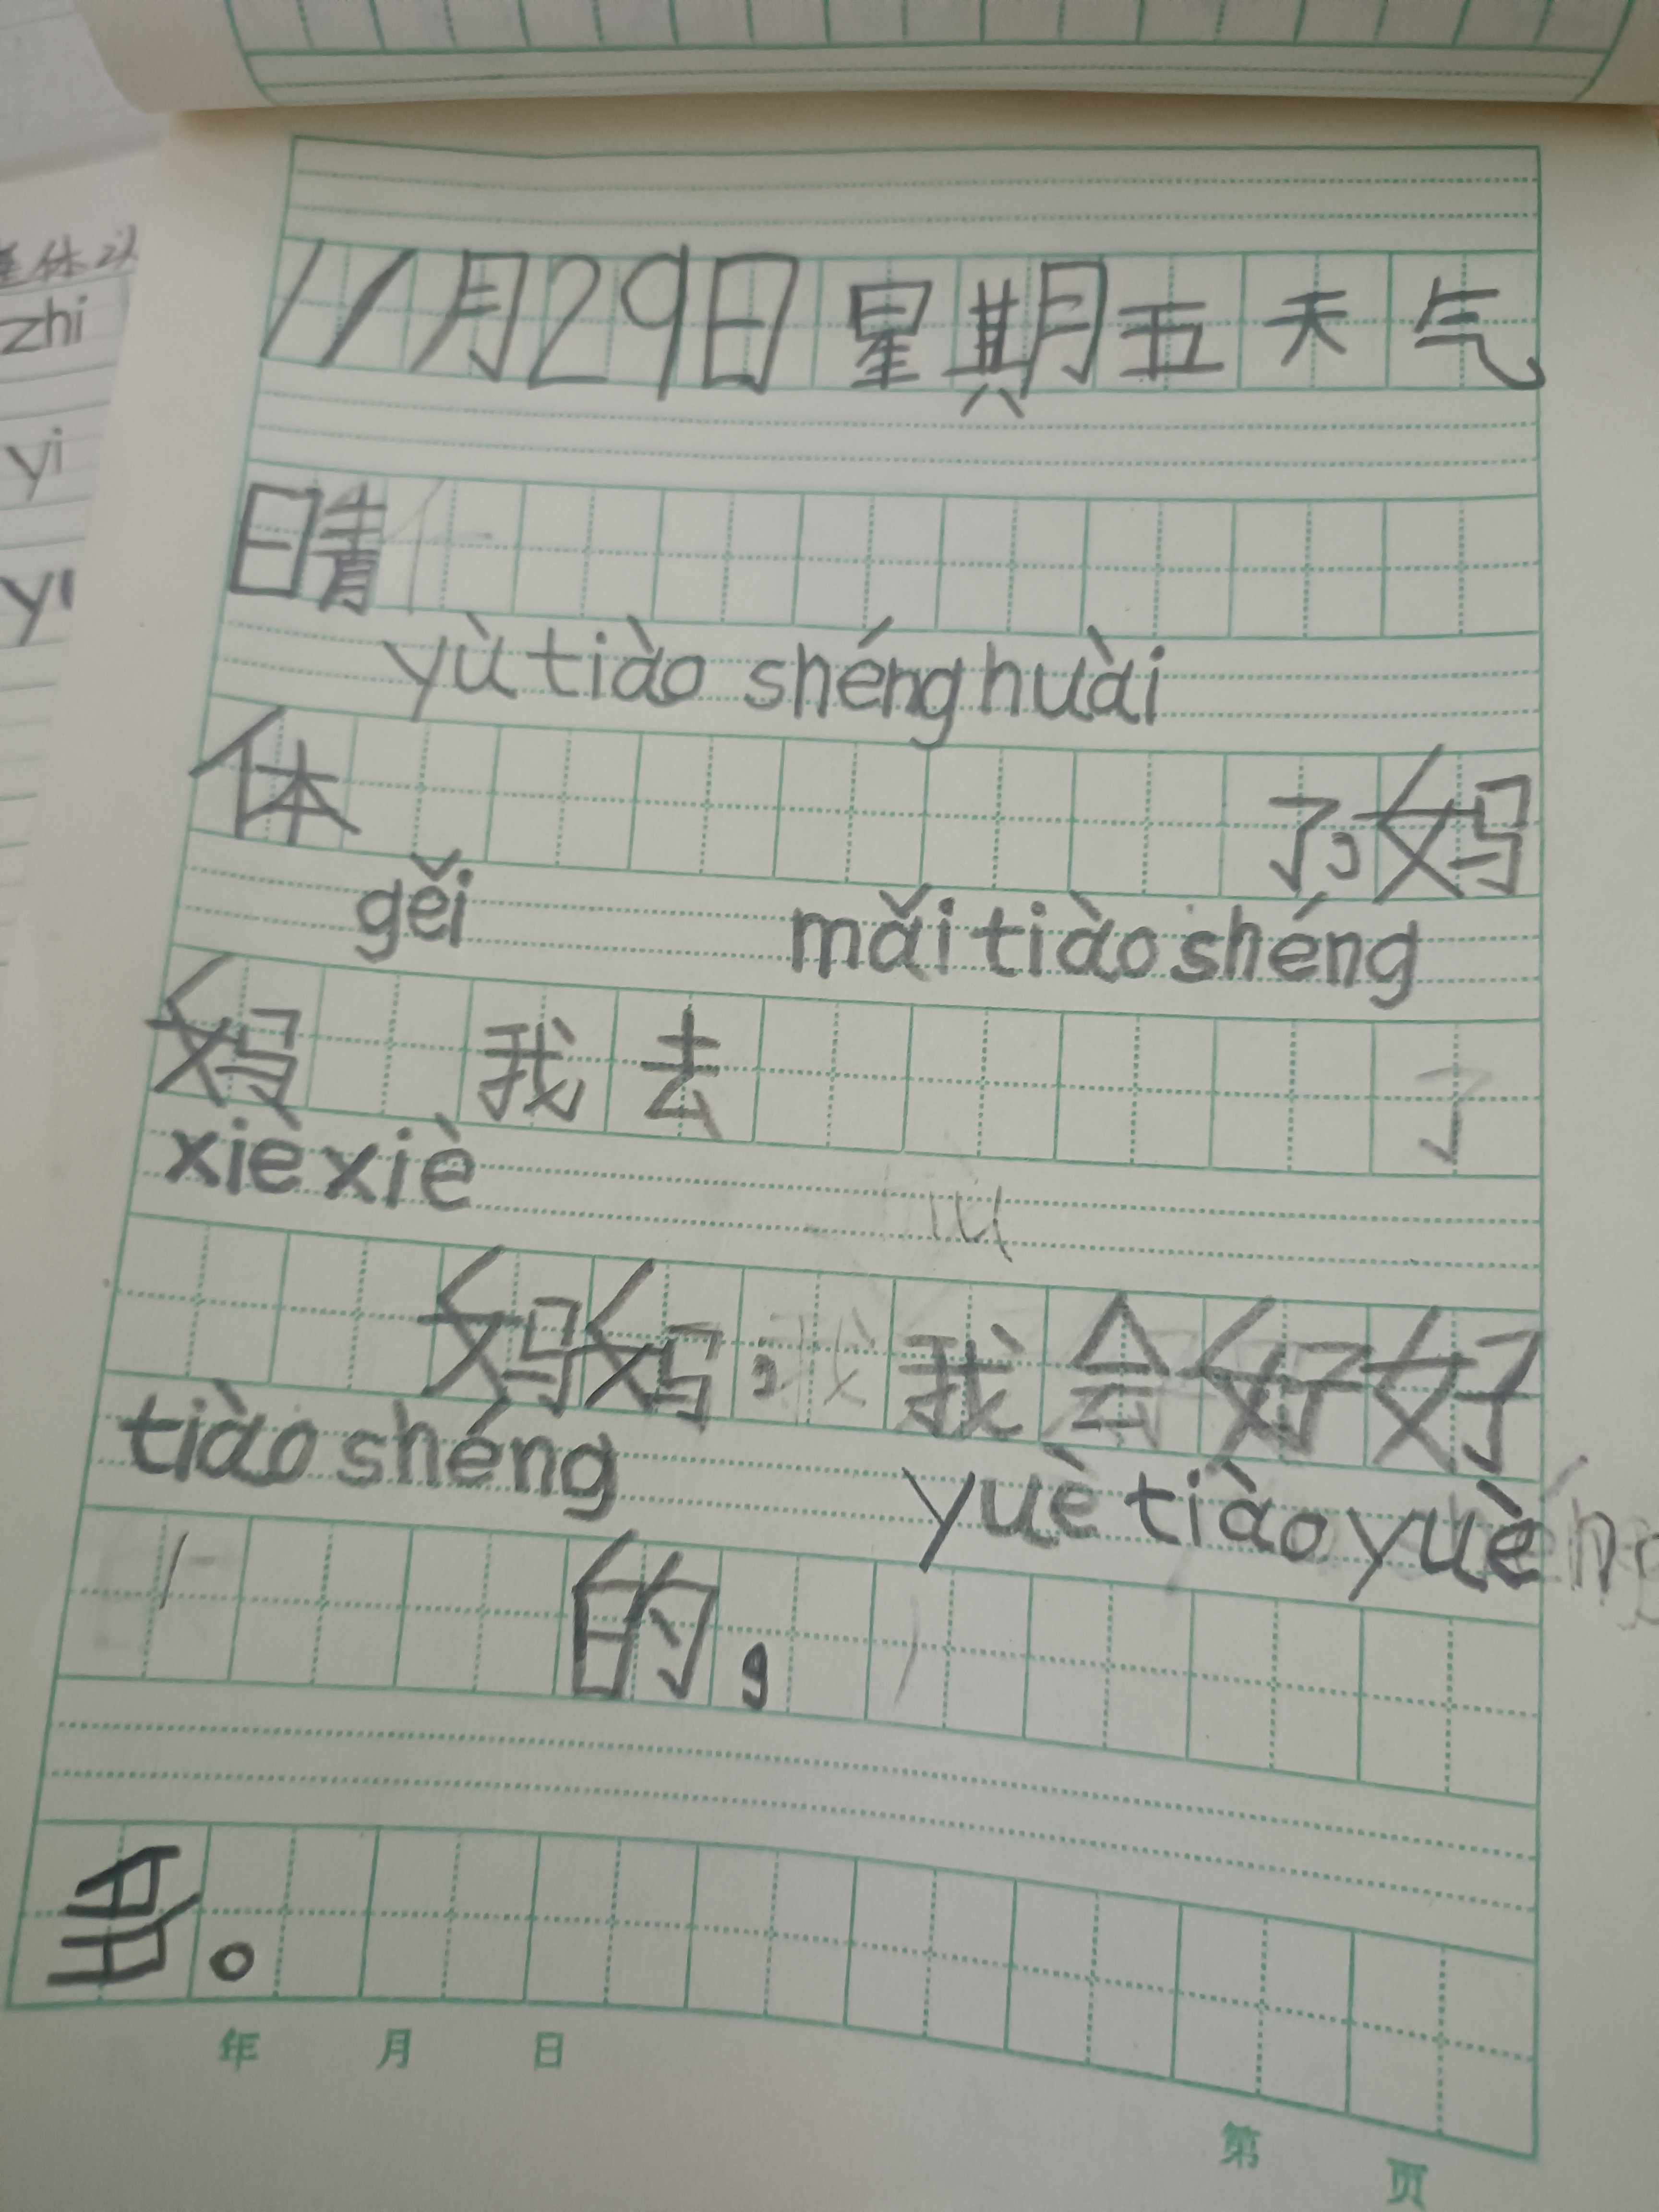 11月29日星期五天气
晴
yù tiào shéng huài
体 了,妈
gěi mǎi tiào shéng
妈 我去
xiè xiè
妈妈,我会好好
tiào shéng yuè tiào yuè
的,
多。
年 月 日
第 页
zhi
yi
yi